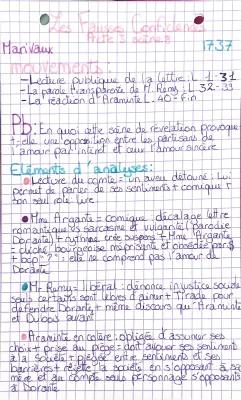 Les Fausses Confidences
Acte 3 scène 8
Marivaux 1737
mouvements:
- Lecture publique de la lettre: L 1-31
- La parole transparente de M. Remy: L 32-39
- La réaction d'Araminte L. 40-Fin
Pb: En quoi cette scène de révélation provoque
t-elle une opposition entre les partisans de
l'amour par intérêt et ceux l'amour sincère
Eléments d'analyses:
Lecture du comte = un aveu détourné: lui
permet de parler de ses sentiments + comique
ton seul role lire
Mme Argante = comique décalage lettre
romantique vs sarcasme et vulgarité (parodie
Dorante) + rythme crée suspens + Mme Argante
cliché bourgeoise méprisante et obsédée par
+ bcp "?": elle ne comprend pas l'amour de
Dorante
Mr Remy = libéral: dénonce injustice sociale
seuls certains sont libres d'aimer + tirade pour
défendre Dorante + même discours qu'Araminte
et Dubois avant
Araminte en colère: obligée d'assumer ses
choix + prise au piège = doit avouer ses sentiments
à la société + piégée entre sentiments et ses
barrières + rejette la société en s'opposant à sa
mère et au compte seuls personnage s'opposants
à Dorante